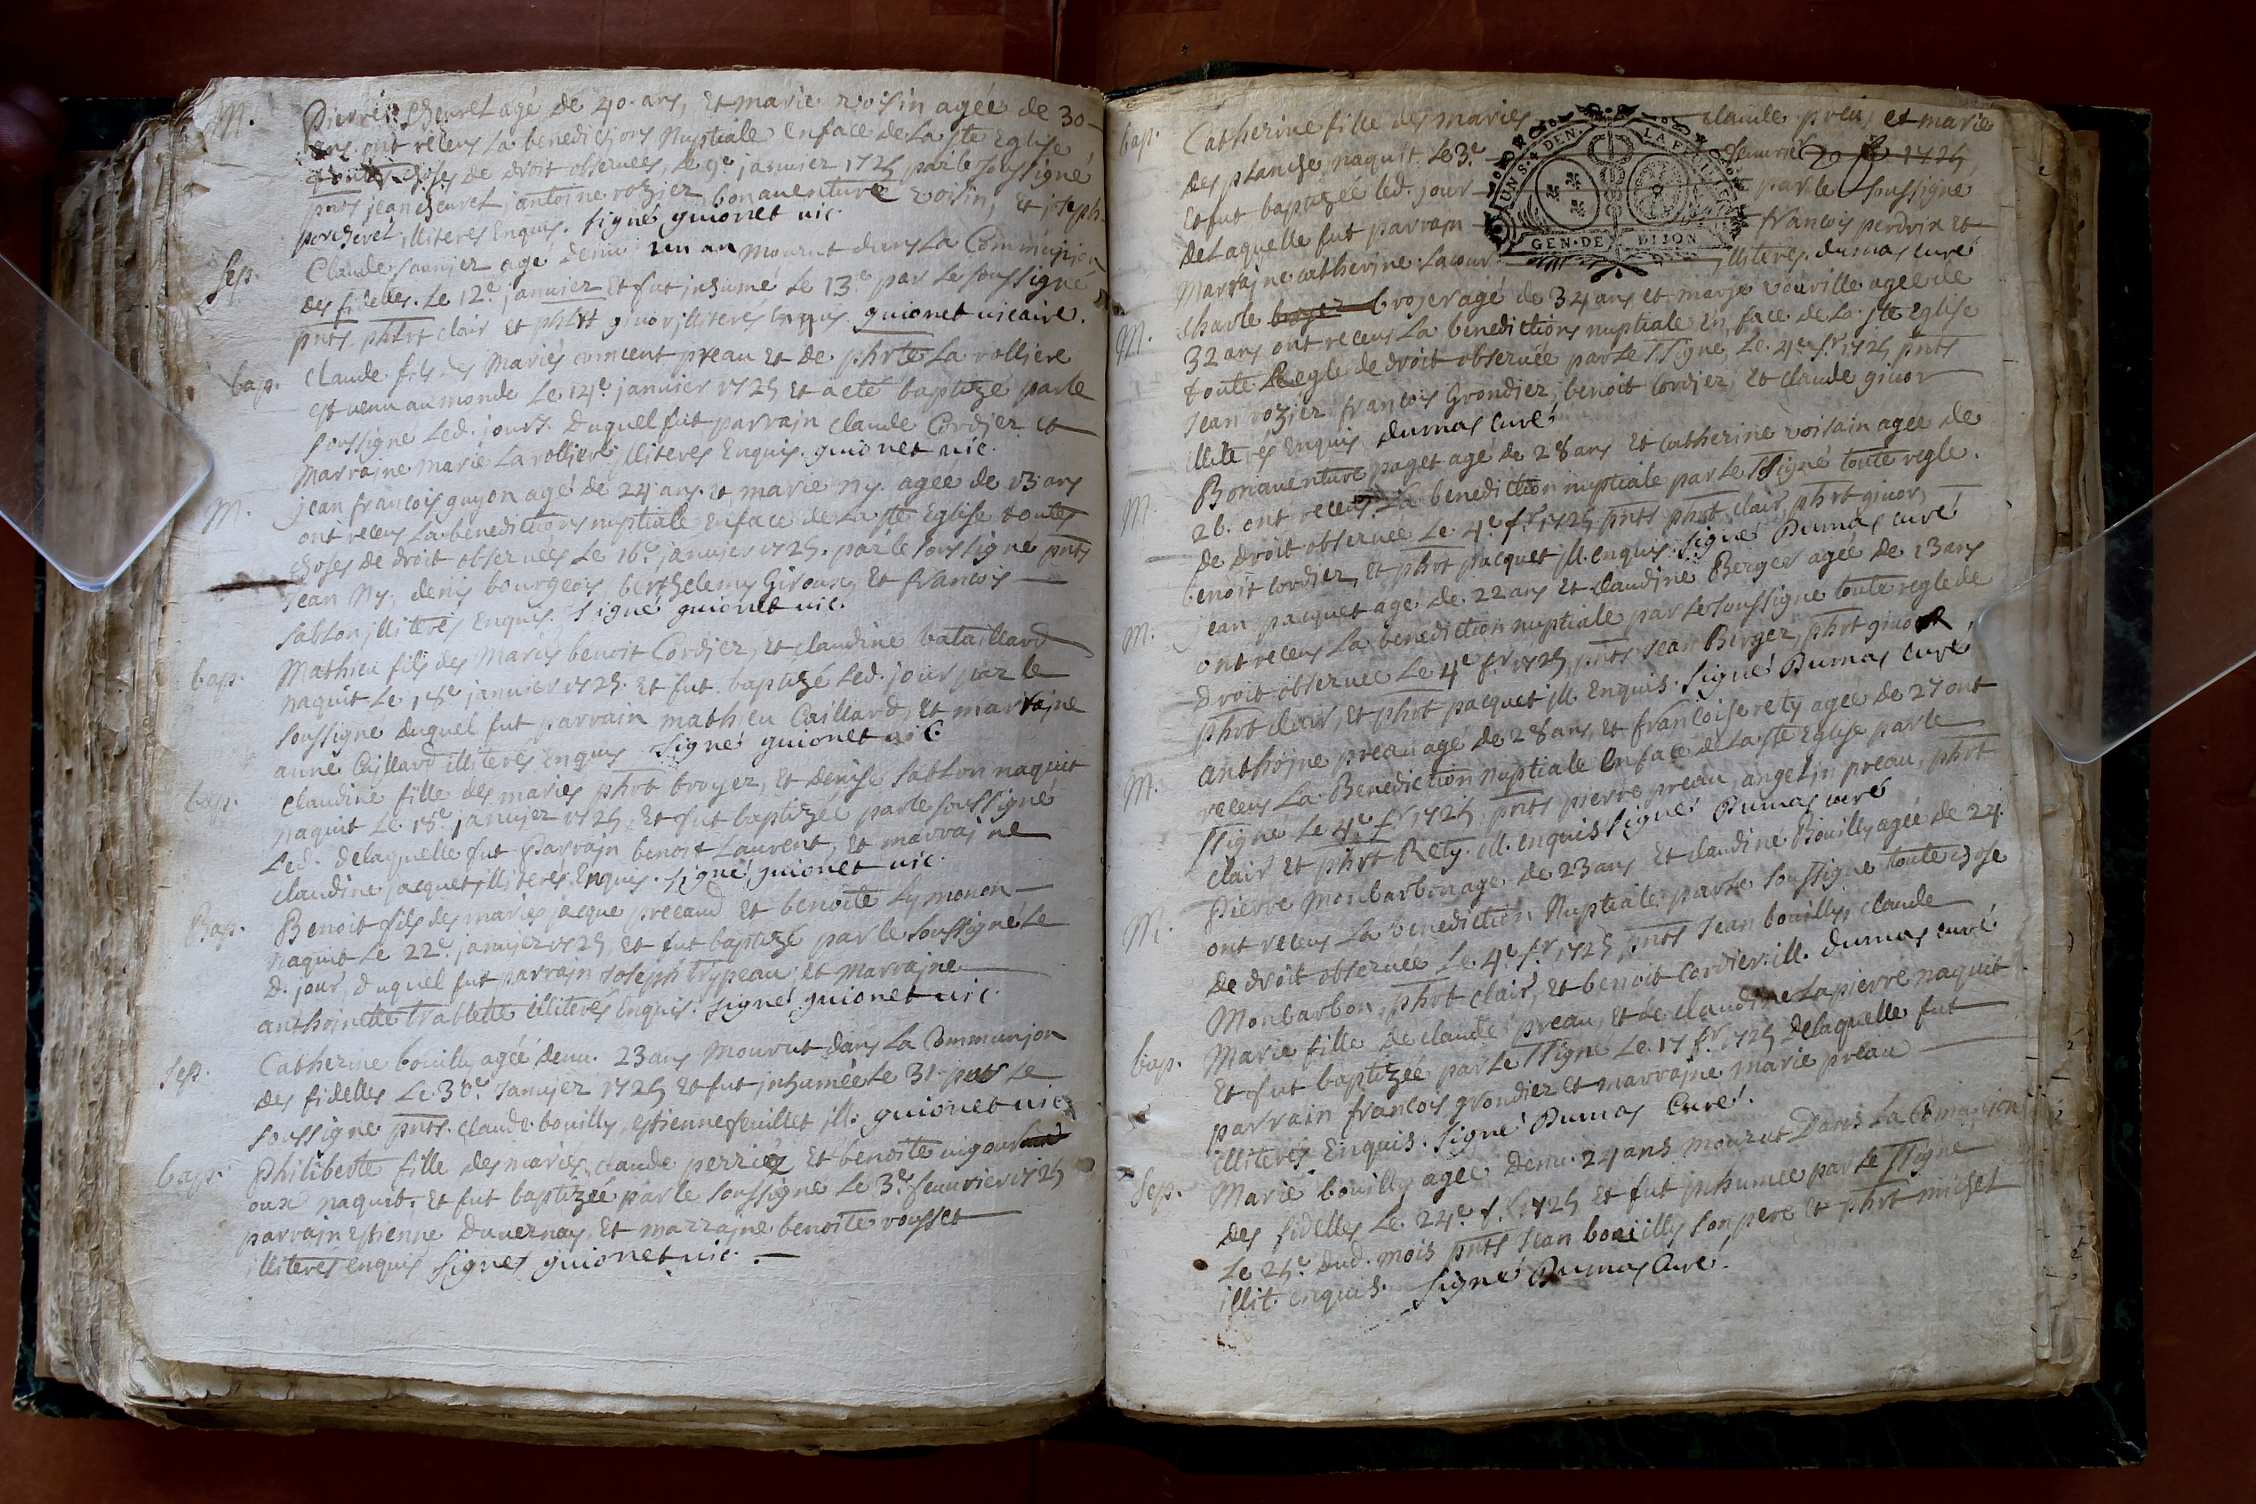 M. Pierre Chevret agé de 40. ans, Et marie voisin agée de 30
ans. ont receus La benedictions Nuptiale Enface de La ste Eglise
choses de droit observées, Le 9.e janvier 1725 par le soussigné
pnts jean chevret, antoine rozier, bonaventure voisin, et joseph
porcheret illiteres Enquis. signé guionet vic.
Sep. Claude saunier agé denv. un an mourut dans La Communion
des fidelles. Le 12.e janvier Et fut inhumé Le 13.e par Le soussigné
pnts. phbrt clair et phbrt givor illiteres Enquis guionet vicaire.
bap. Claude fils des Mariés vincent preau Et de phrte La rolliere
est venu au monde Le 14.e janvier 1725 Et a eté baptizé par le
soussigné Led. jour. Duquel fut parrain claude Cordier et
Marraine marie La rolliere illiteres Enquis. guionet vic.
M. jean francois guyon agé de 24 ans et marie ny. agée de 23 ans
ont receus La benedictions nuptiale Enface de La ste Eglise toutes
choses de droit observées Le 16.e janvier 1725. par le soussigné pnts
Jean Ny, denis bourgeois, berthelemy Giroux, Et francois
sablon illiteres Enquis. signé guionet vic.
bap. Mathieu fils des Mariés benoit Cordier, et claudine bataillard
naquit Le 18.e janvier 1725. Et fut baptizé Led. jour par le
soussigné duquel fut parrain mathieu Caillard, Et marraine
anne Caillard illiteres Enquis signé guionet vic.
bap. Claudine fille des mariés phbrt broyer, Et denise sablon naquit
naquit Le 18.e janvier 1725, Et fut baptizée par le soussigné
Led. delaquelle fut Parrain benoit Laurent, Et marraine
claudine jacquet illiteres Enquis. signé guionet vic.
Bap. Benoit fils des mariés jacque preaud Et benoite symonon
naquit Le 22.e janvier 1725, Et fut baptizé par le soussigné Le
D. jour, duquel fut parrain Joseph trypeau Et Marraine
anthoinette trablette illiteres Enquis. signé guionet vic.
Sep. Catherine bouilly agéé denv. 23 ans Mourut dans La Communion
des fidelles Le 30.e Janvier 1725 Et fut inhumée Le 31. par Le
soussigné pnts. claude bouilly, estienne feuillet ill. guionet vic.
bap. Philiberte fille des mariés claude perrier Et benoite vigour
oux naquit. Et fut baptizée par le soussigné Le 3.e feuvrier 1725
parrain estienne Duvernay, Et marraine benoite rousset
illiteres enquis signés guionet vic.
bap. Catherine fille des mariés claude preau, et marie
des planche naquit Le 3.e feuvrier 1725
Et fut baptizée led. jour par le soussigné
deLaquelle fut parrain francois perdrix Et
Marraine catherine Lacour illiteres. dumas curé
GEN. DE DIJON
M. Charle broyer agé de 34 ans et marie vouville agée de
32 ans ont receus La benedictions nuptiale En face de La ste Eglise
toute Regle de droit observée par Le ssigné Le 4.e fr. 1725 pnts
Jean rozier francois Grondier, benoit Cordier, Et claude givor
illiteres Enquis Dumas Curé
M. Bonaventure paget agé de 28 ans Et Catherine voisain agée de
26. ont receus La benediction nuptiale par Le ssigné toute regle.
de Droit observée Le 4.e fr. 1725 pnts phbrt clair, phbrt givor,
benoit Cordier, Et phbrt pacquet ill. enquis. signé Dumas Curé
M. jean pacquet agé de. 22 ans Et claudine Berger agée de 23 ans
ont receus La benediction nuptiale par le soussigné toute regle de
Droit observee Le 4.e fr. 1725, pnts Jean Birger, phbrt givor
phbrt clair, Et phbrt pacquet ill. Enquis. signé Dumas Curé
M. anthoine preau agé de 28 ans, Et francoise rety agée de 27 ont
receus La Benediction nuptiale Enface de La ste Eglise par le
ssigné Le 4.e fr. 1725, pnts pierre preau, angelin preau, phbrt
clair Et phbrt Rety. ill. enquis signé Dumas curé
M. Pierre Monbarbon agé de 23 ans Et claudine Bouilly agée de 24.
ont receus La benediction Nuptiale par Le soussigné toute chose
de droit observée Le 4.e fr. 1725, pnts Jean bouilly, claude
Monbarbon, phbrt clair, Et benoit Cordier. ill. Dumas curé
bap. Marie fille de claude preau, Et de claudine Lapierre naquit
Et fut baptizée par Le ssigné Le 17 fr. 1725 delaquelle fut
parrain francois grondier et marraine marie preau
illiteres Enquis. signé Dumas Curé.
Sep. Marie bouilly agée denv. 24 ans mourut Dans La Comunion
des fidelles Le 24.e f. 1725 Et fut inhumée par Le ssigné
Le 25.e dud. mois pnts Jean bouilly son pere Et phbrt michel
illit. enquis. signé Dumas Curé.